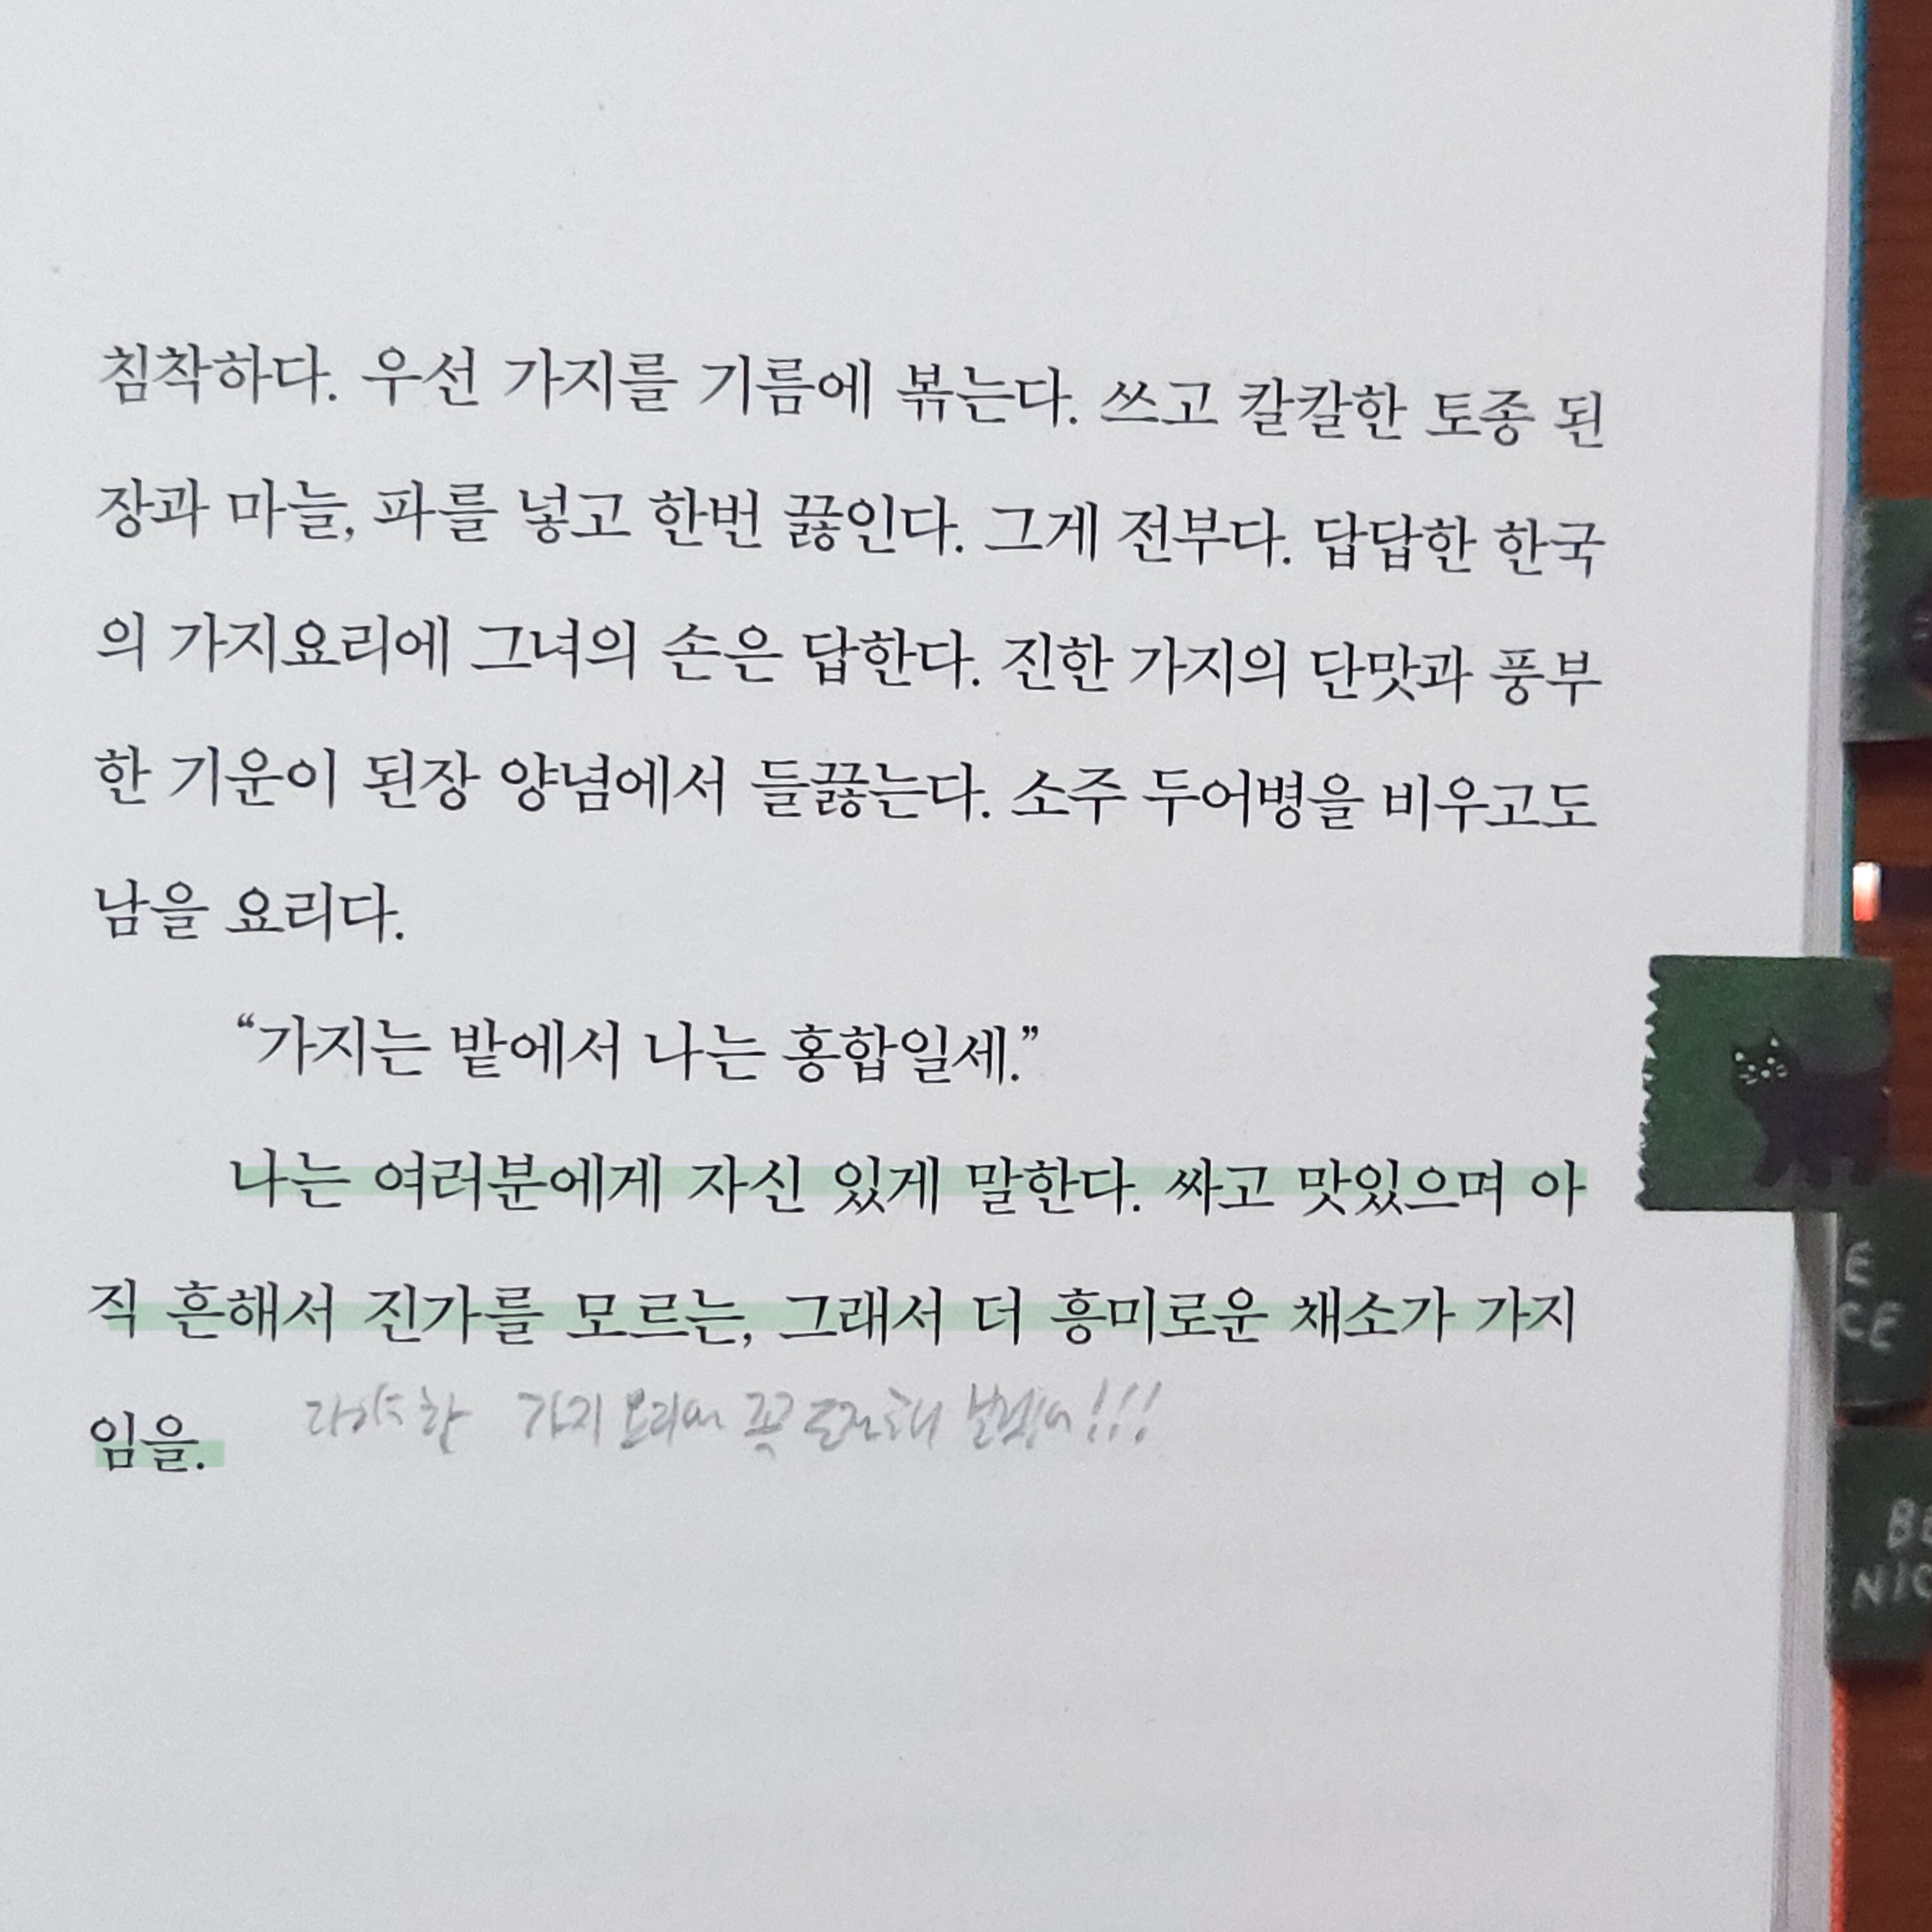 침착하다. 우선 가지를 기름에 볶는다. 쓰고 칼칼한 토종 된
장과 마늘, 파를 넣고 한번 끓인다. 그게 전부다. 답답한 한국
의 가지요리에 그녀의 손은 답한다. 진한 가지의 단맛과 풍부
한 기운이 된장 양념에서 들끓는다. 소주 두어병을 비우고도
남을 요리다.
“가지는 밭에서 나는 홍합일세.”
나는 여러분에게 자신 있게 말한다. 싸고 맛있으며 아
직 흔해서 진가를 모르는, 그래서 더 흥미로운 채소가 가지
임을.
다양한 가지요리에 꼭 도전해
CE
BE
NIC